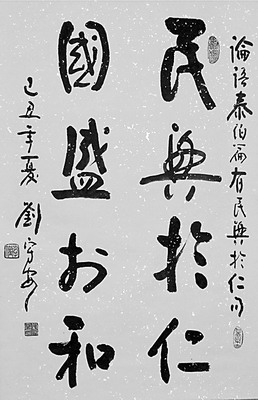 論語泰伯篇有民興於仁句
民興於仁
國盛於和
己丑年夏劉守安